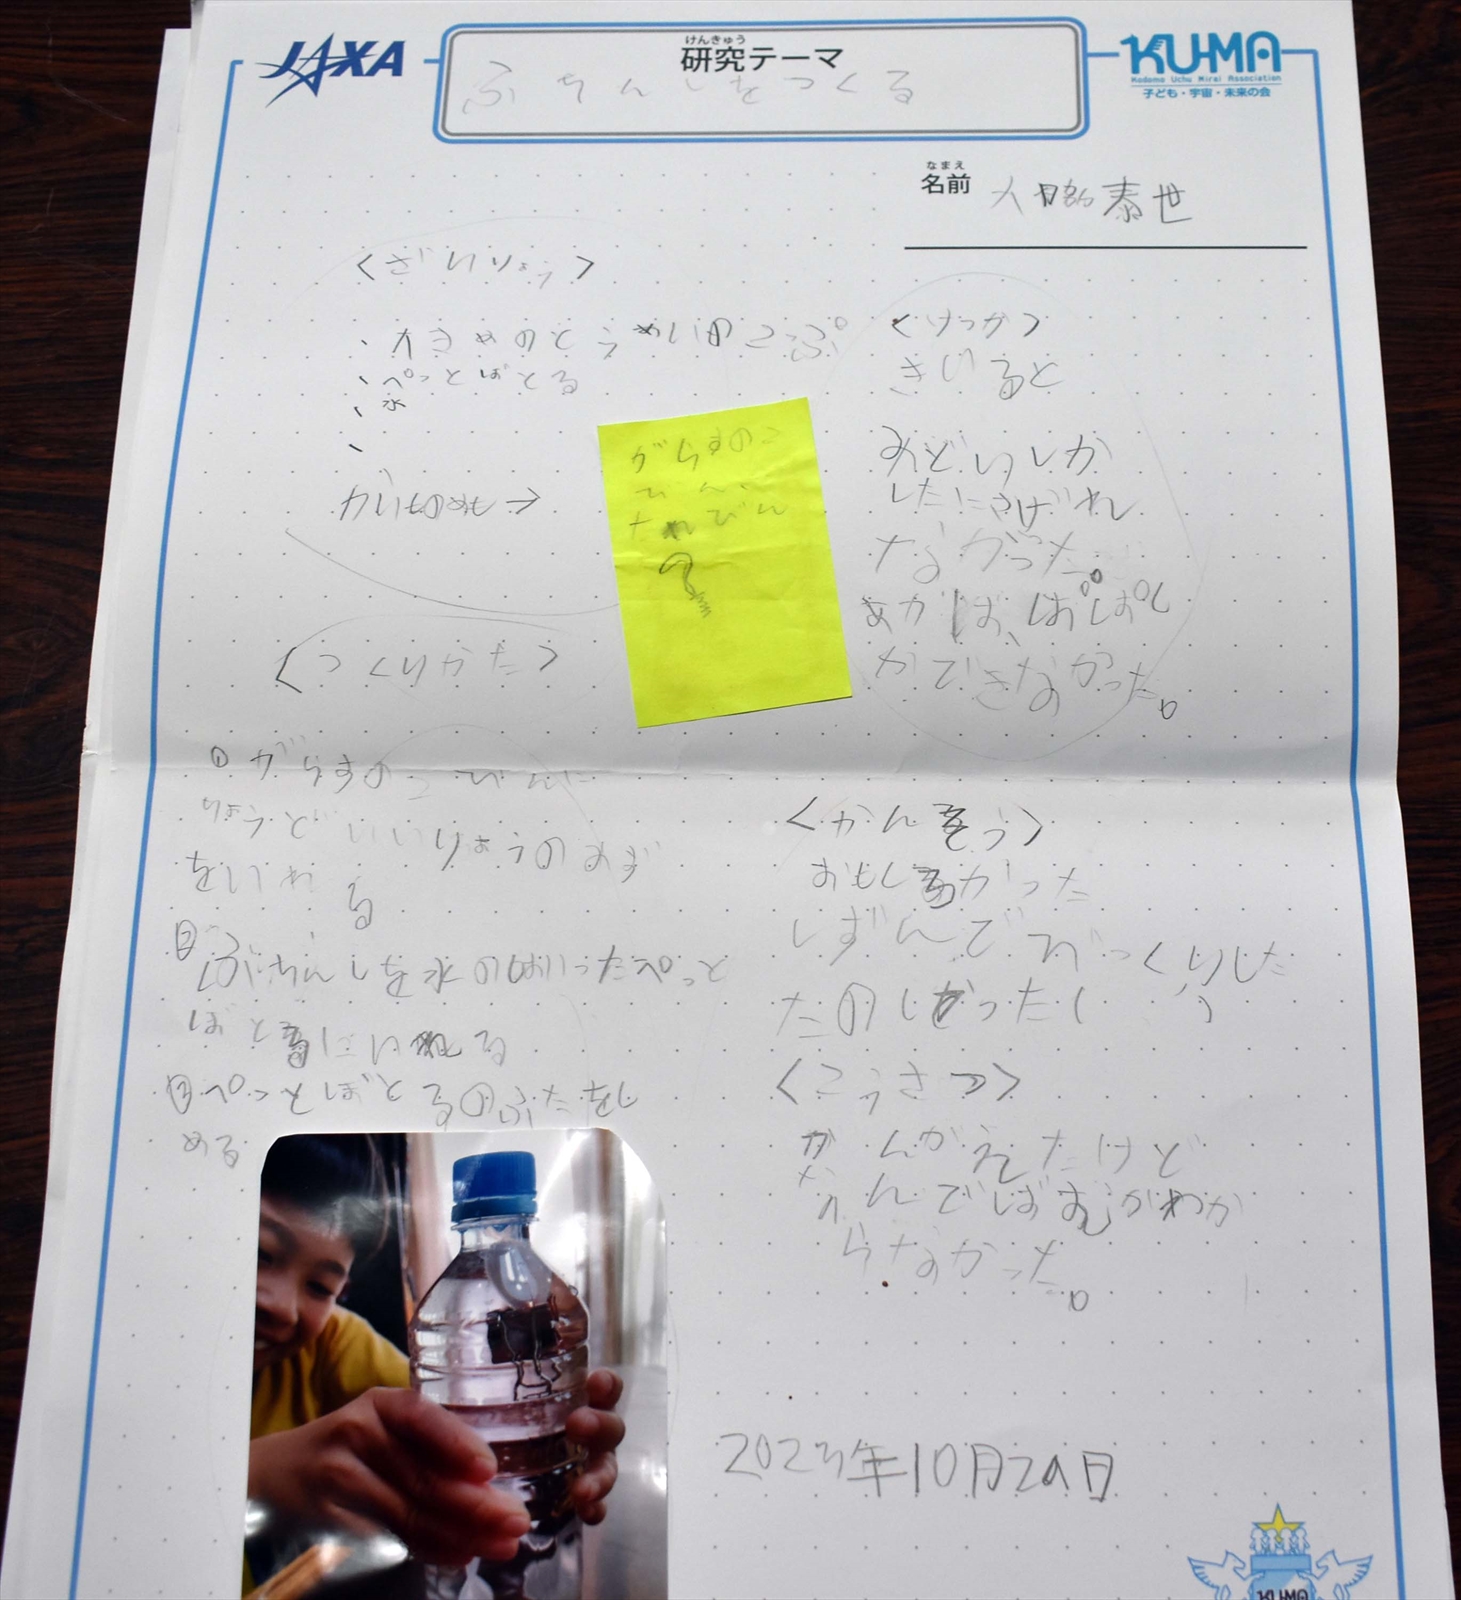 JAXA
けんきゅう
研究テーマ
ふちんしをつくる
KU-MA
Kodomo Uchu Mirai Association
子ども・宇宙・未来の会
なまえ
名前
泰世
<ざいりょう>
、大きめのとうめいのこっぷ
、ぺっとぼとる
、水
、
かいものめも→
がらすのこ
びん、
<つくりかた>
① がらすのこびんに
ちょうどいいりょうのみず
をいれる
② ふちんしを水のはいったぺっと
ぼとるにいれる
③ぺっとぼとるのふたをし
める
<けっか>
きいろと
みどりしか
したにさがれ
なかった。
あかは、ぱぱし
かできなかった。
<かんそう>
おもしろかった
しずんでびっくりした
たのしかった
<こうさつ>
かんがえたけど
なんでしずむかわか
らなかった。
2023年10月29日
KUMA